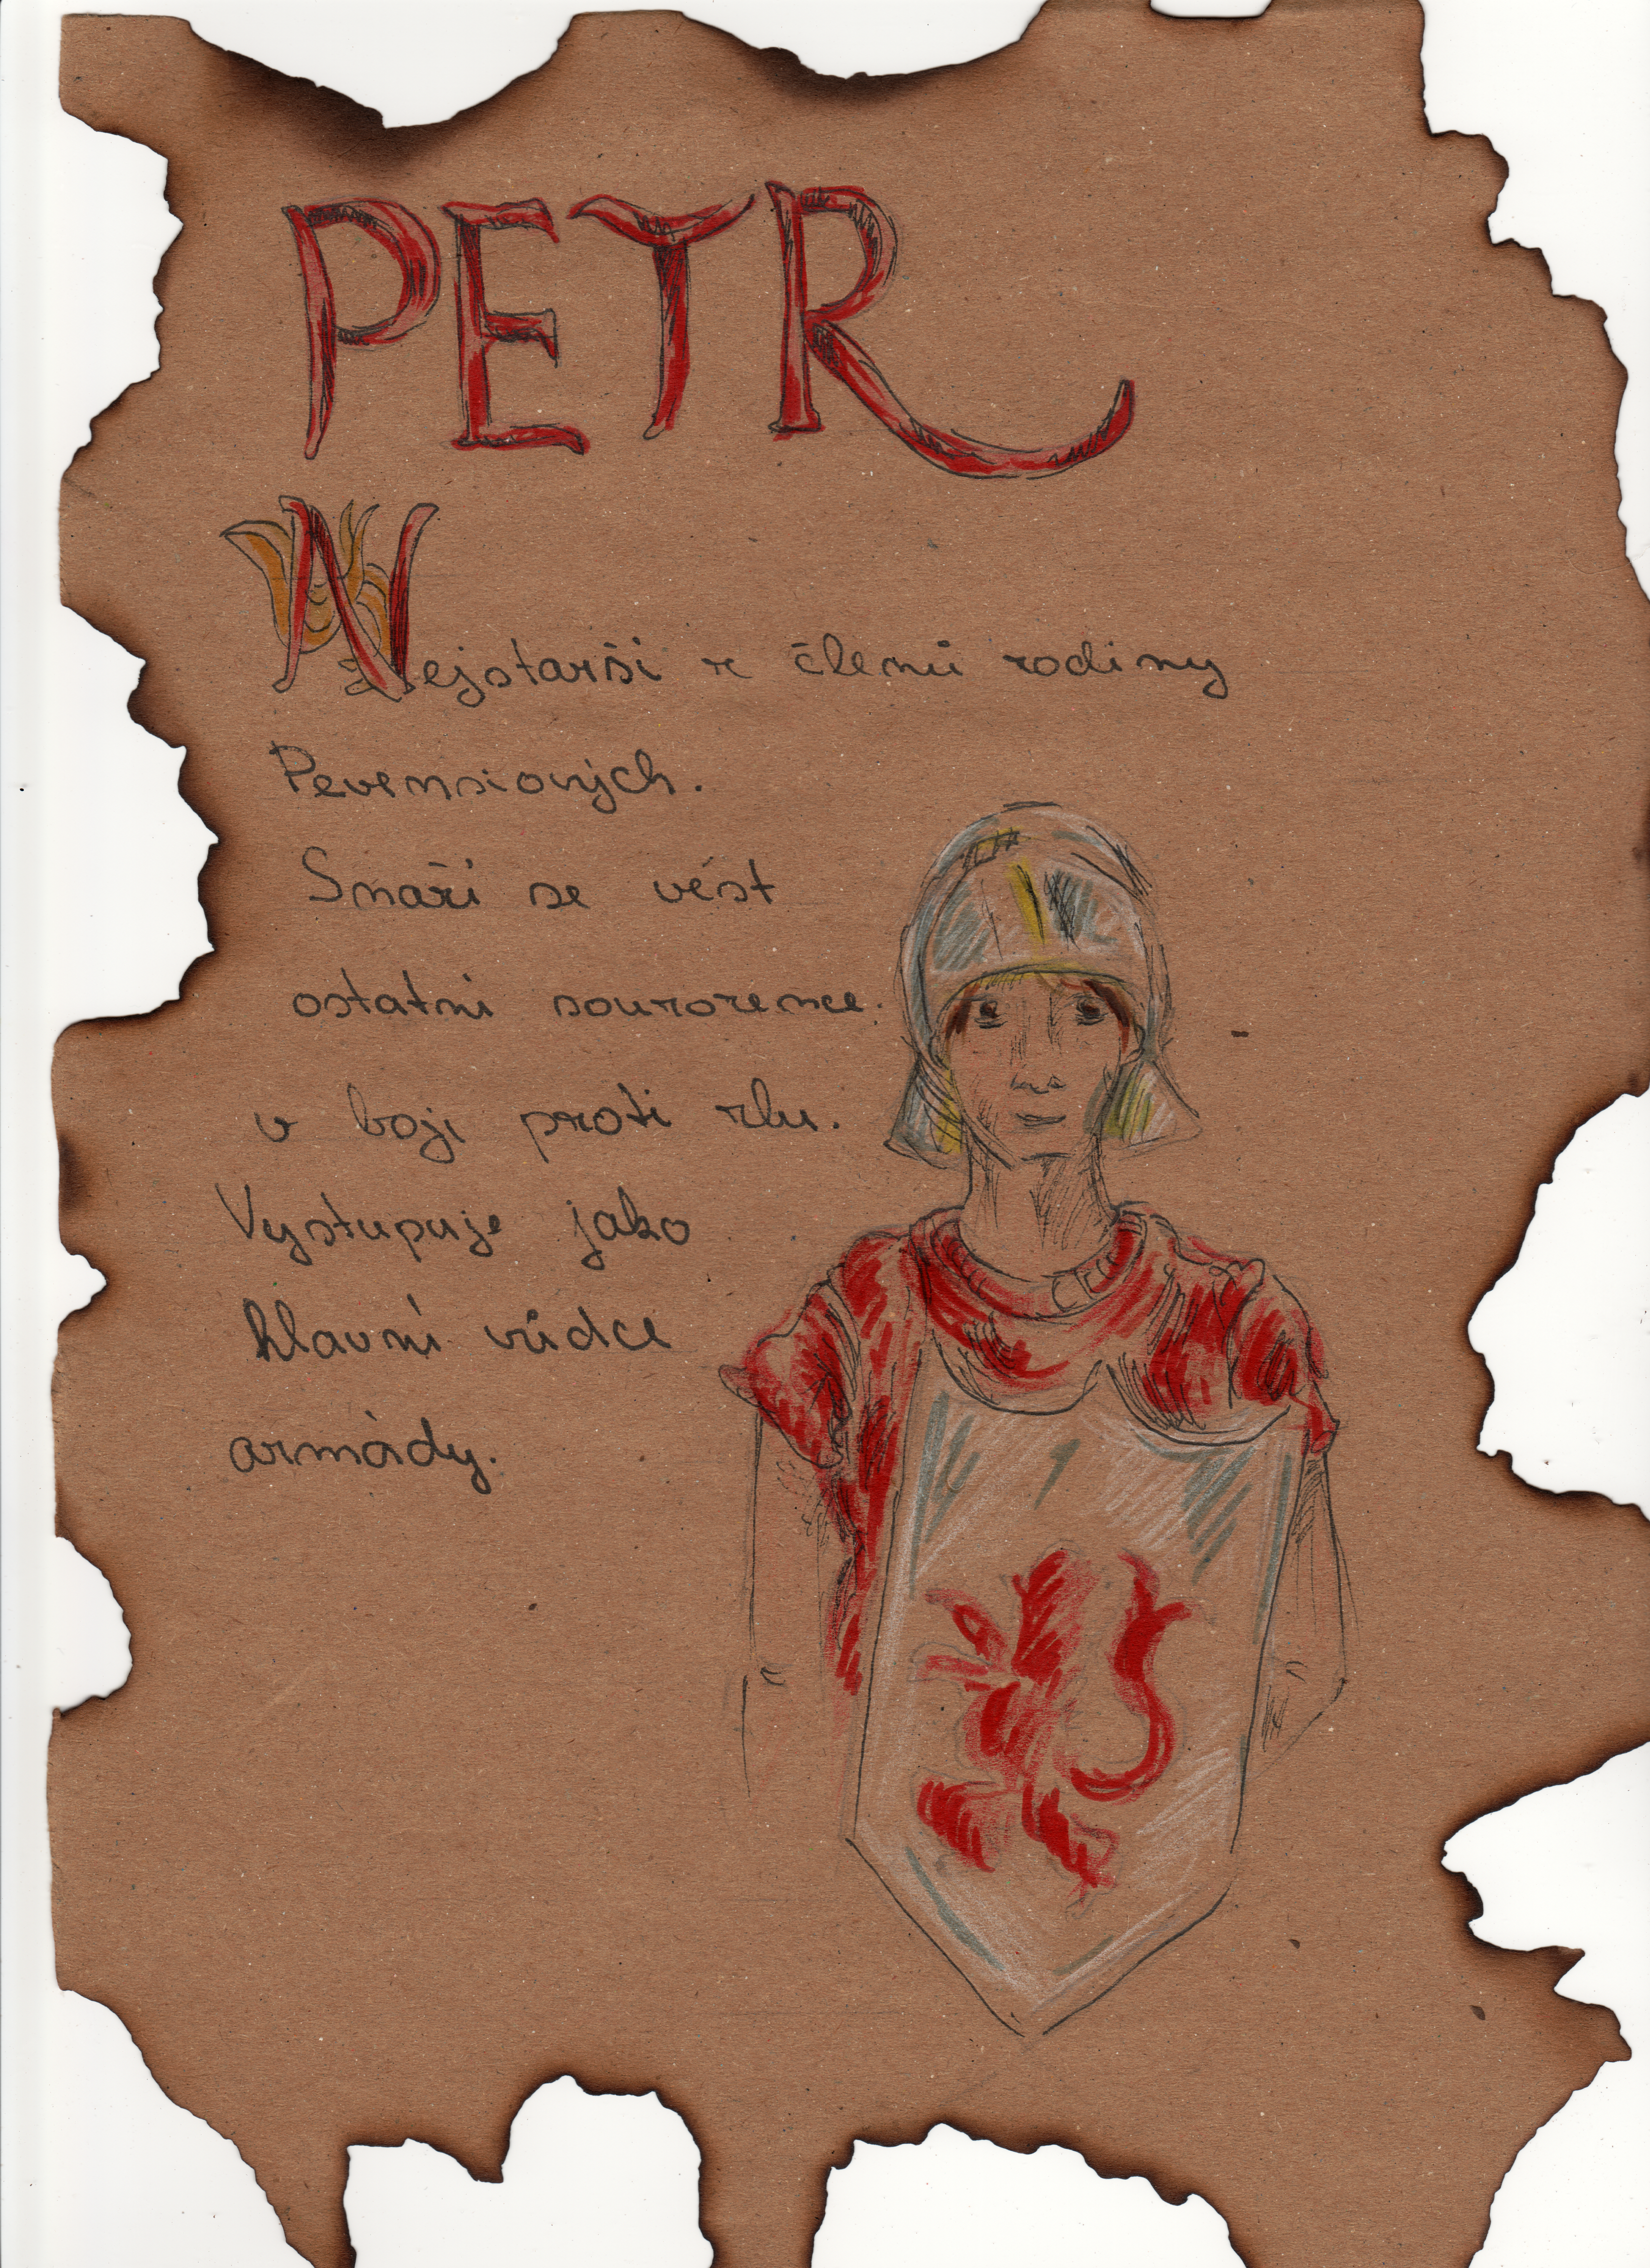 PETR
Nejstarší z členů rodiny
Pevensiových.
Snaží se vést
ostatní sourozence.
v boji proti zlu.
Vystupuje jako
hlavní vůdce
armády.